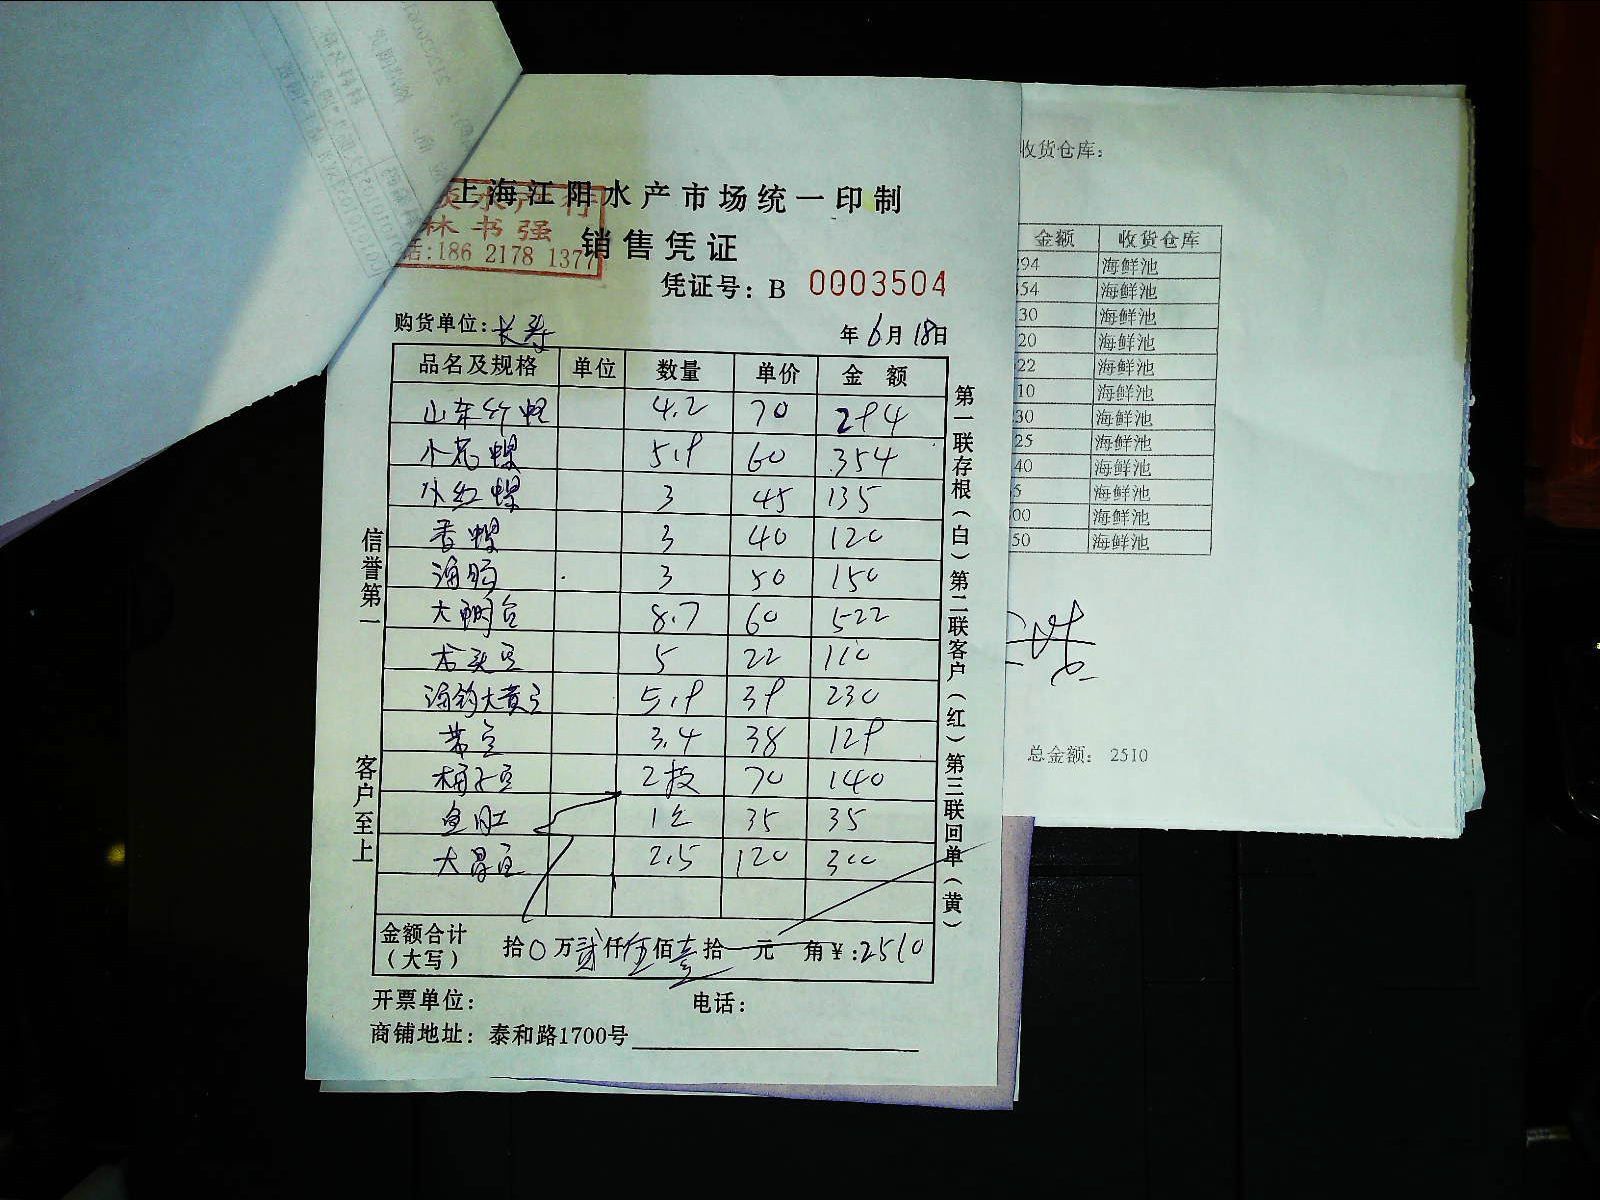 上海江阳水产市场统一印制
水产行
林书强
话:186 2178 1377
销售凭证
凭证号: B 0003504
购货单位: 长寿
年6月18日
品名及规格 单位 数量 单价 金额
山东竹蛏 4.2 70 294
小花螺 5.9 60 354
小红螺 3 45 135
香螺 3 40 120
海肠 3 50 150
大鲷鱼 8.7 60 522
龙头鱼 5 22 110
海钓大黄鱼 5.9 39 230
带鱼 3.4 38 129
2板 70 140
鱼肚 1 35 35
大昌鱼 2.5 120 300
金额合计
(大写)
拾0万贰仟伍佰壹拾元 角¥:2510
开票单位:
电话:
商铺地址: 泰和路1700号
信誉第一
客户至上
第一联存根(白)第二联客户(红)第三联回单(黄)
收货仓库:
金额 收货仓库
294 海鲜池
354 海鲜池
30 海鲜池
20 海鲜池
22 海鲜池
10 海鲜池
30 海鲜池
25 海鲜池
40 海鲜池
5 海鲜池
00 海鲜池
50 海鲜池
总金额: 2510